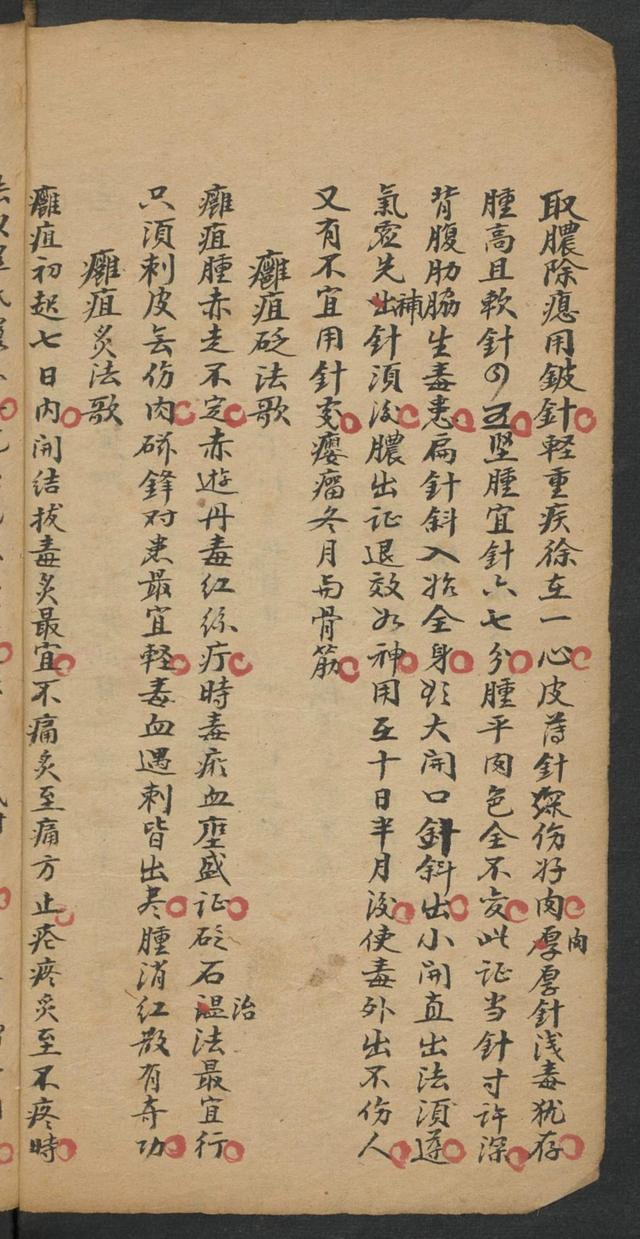 取膿除瘜用鈹針輕重疾徐在一心皮薄針深伤好肉肉厚厚針浅毒犹存
腫高且軟針四五坚腫宜針六七分腫平肉色全不变此证当針寸许深
背腹肋脇生毒患扁針斜入始全身欲大開口針斜出小開直出法須遵
氣虛先補出針須後膿出证退效如神用至十日半月後使毒外出不伤人
又有不宜用針变瘿瘤冬月与骨筋
癰疽砭法歌
癰疽腫赤走不定赤遊丹毒红絲疔時毒瘀血壅盛证砭石治温法最宜行
只須刺皮无伤肉砵鋒对患最宜輕毒血遇刺皆出尽腫消红散有奇功
癰疽炙法歌
癰疽初起七日内開结拔毒炙最宜不痛炙至痛方止疮疼炙至不疼時